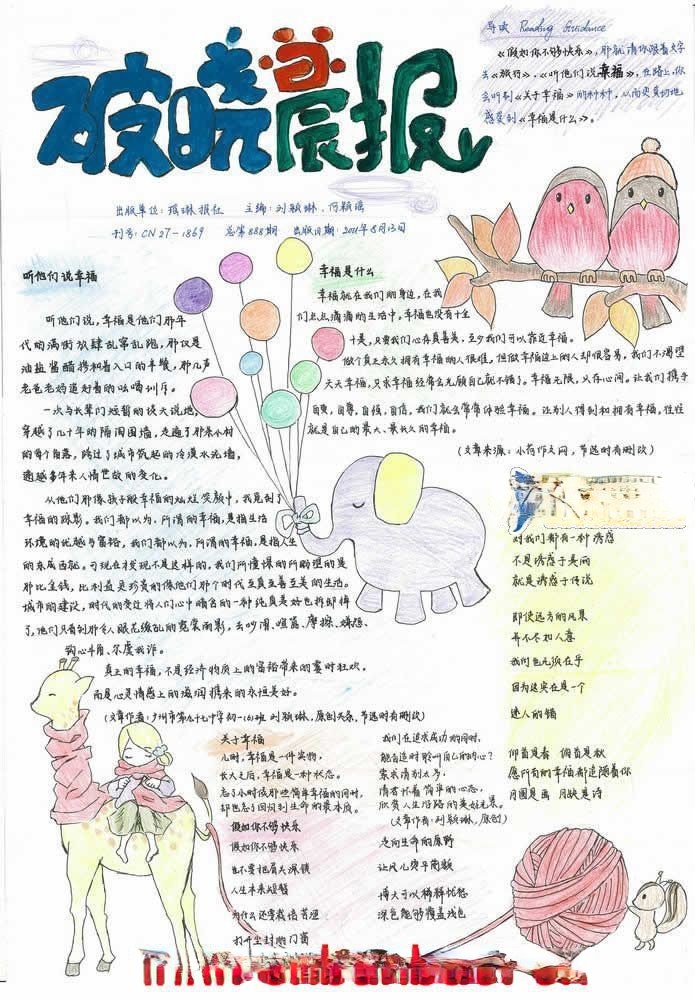 破晓晨报
导读 Reading Guidance
《假如你不够快乐》,那就请你跟着文字
去《旅行》,《听他们说幸福》,在路上,你
会听到《关于幸福》的种种,从而更真切地
感受到《幸福是什么》。
主编:刘颖琳、何颖瑶
刊号:CN27-1869 总第888期 出版日期:2011年5月13日
听他们说幸福
听他们说,幸福是他们那年
代的满街放肆乱窜乱跑,那仅是
油盐酱醋搀和着入口的辛餐,那几声
老爸老妈追赶着的吆喝训斥。
一次与长辈们短暂的谈天说地,
穿越了几十年的隔阂围墙,走遍了那条小村
的每个角落,跨过了城市筑起的冷漠水泥墙,
逾越多年来人情世故的变化。
从他们那像孩子般幸福的灿烂笑颜中,我觅到了
幸福的踪影。我们都以为,所谓的幸福,是指生活
环境的优越与富裕,我们都以为,所谓的幸福,是指人生
的东成西就。可现在发现不是这样的,我们所憧憬的所盼望的是
那比金钱,比利益更珍贵的像他们那个时代至真至善至美的生活。
城市的建设,时代的变迁将人们心中暗含的一种纯真美好也拆卸掉
了,他们只看到那令人眼花缭乱的霓裳丽影,去吵闹、喧嚣、摩擦、
钩心斗角、尔虞我诈。
真正的幸福,不是经济物质上的富裕带来的霎时狂欢,
而是心灵情感上的滋润携来的永恒美好。
(文章作者:广州市第九十七中学初一(6)班 刘颖琳,原创,节选时有删改)
幸福是什么
幸福就在我们的身边,在我
们点点滴滴的生活中,幸福也没有十全
十美,只要我们心存真善美,至少我们可以靠近幸福。
做个真正永久拥有幸福的人很难,但做幸福边上的人却很容易,我们不渴望
天天幸福,只求幸福经常会光顾自己就不错了。幸福无限,只存心间。让我们携手
自爱,自尊,自强,自信,我们就会常常体验幸福。让别人得到和拥有幸福,往往
就是自己的最大、最长久的幸福。
(文章来源:小荷作文网,节选时有删改)
对我们都有一种诱惑
不是诱惑于美丽
就是诱惑于传说
即使远方的风景
并不尽如人意
我们也无须在乎
因为这实在是一个
迷人的错
仰首是春 俯首是秋
愿所有的幸福都追随着你
月圆是画 月缺是诗
关于幸福
儿时,幸福是一件实物,
长大之后,幸福是一种状态。
忘了小时候那些简单幸福的同时,
却也忘了回问到生命的最本质。
我们在追求成功的同时,
能否适时聆听自己的内心?
索求请别太多,
请君怀着简单的心态,
欣赏人生沿路的美好光景。
(文章作者:刘颖琳,原创)
假如你不够快乐
假如你不够快乐
也不要把眉头深锁
人生本来短暂
为什么还要栽培苦涩
打开尘封的门窗
走向生命的原野
让风儿熨平前额
博大可以稀释忧愁
深色能够覆盖浅色